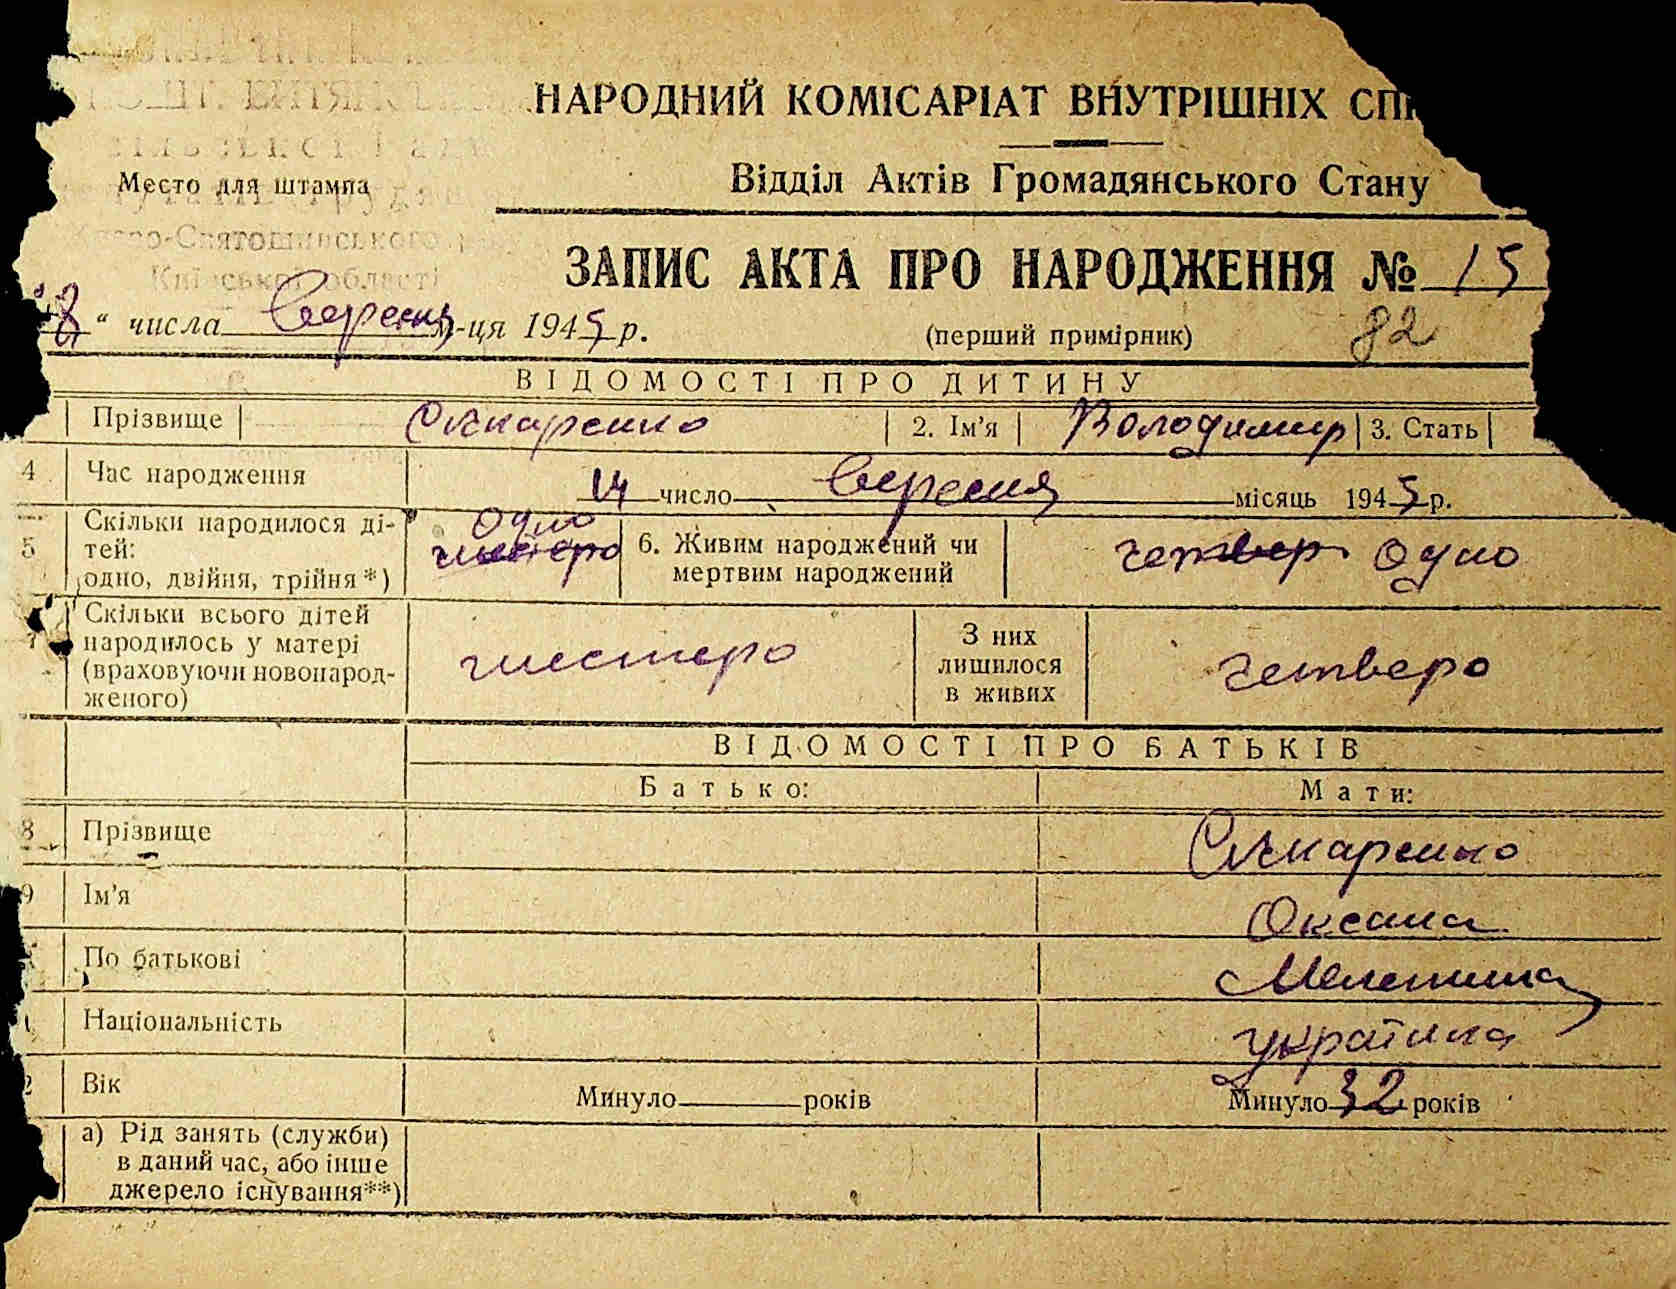 НАРОДНИЙ КОМІСАРІАТ ВНУТРІШНІХ
Відділ Актів Громадянського Стану
Место для штампа
Києво-Святошинського
Київської області
ЗАПИС АКТА ПРО НАРОДЖЕННЯ № 15
8 " числа вересня м-ця 1945 р.
(перший примірник) 82
ВІДОМОСТІ ПРО ДИТИНУ
Прізвище 2. Ім'я Володимир 3. Стать
4 Час народження 14 число вересня місяць 1945 р.
5 Скільки народилося ді-
тей:
одно, двійня, трійня*) одно шестеро
6. Живим народжений чи
мертвим народжений четвер одно
Скільки всього дітей
народилось у матері
(враховуючи новонарод-
женого) шестеро
З них
лишилося
в живих четверо
ВІДОМОСТІ ПРО БАТЬКІВ
Батько: Мати:
8 Прізвище
9 Ім'я Оксана
По батькові
Національність україника
Вік Минуло років Минуло 32 років
а) Рід занять (служби)
в даний час, або інше
джерело існування**)